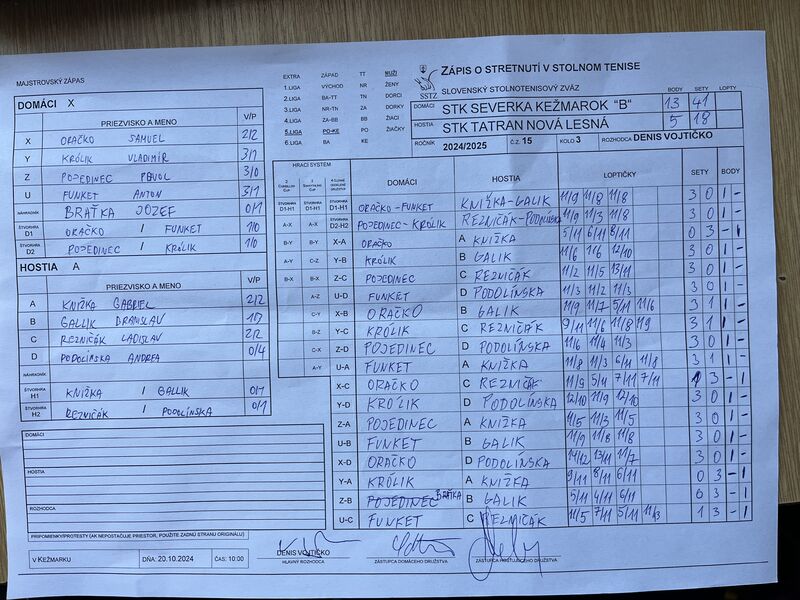 MAJSTROVSKÝ ZÁPAS
DOMÁCI X
PRIEZVISKO A MENO V/P
X ORAČKO SAMUEL 2/2
Y KRÓLIK VLADIMÍR 3/1
Z POJEDINEC PAVOL 3/0
U FUNKET ANTON 3/1
NÁHRADNÍK BRAŤKA JOZEF 0/1
ŠTVORHRA D1 ORAČKO / FUNKET 1/0
ŠTVORHRA D2 POJEDINEC / KRÓLIK 1/0
HOSTIA A
PRIEZVISKO A MENO V/P
A KNIŽKA GABRIEL 2/2
B GALLIK BRANISLAV
C REZNIČÁK LADISLAV 2/2
D PODOLÍNSKA ANDREA 0/4
NÁHRADNÍK
ŠTVORHRA H1 KNIŽKA / GALLIK 0/1
ŠTVORHRA H2 REZNIČÁK / PODOLÍNSKA 0/1
DOMÁCI
HOSTIA
ROZHODCA
PRIPOMIENKY/PROTESTY (AK NEPOSTAČUJE PRIESTOR, POUŽITE ZADNÚ STRANU ORIGINÁLU)
V KEŽMARKU DŇA: 20.10.2024 ČAS: 10:00
DENIS VOJTIČKO
HLAVNÝ ROZHODCA
ZÁSTUPCA DOMÁCEHO DRUŽSTVA
ZÁSTUPCA HOSŤUJÚCEHO DRUŽSTVA
EXTRA ZÁPAD TT MUŽI
1.LIGA VÝCHOD NR ŽENY
2.LIGA BA-TT TN DORCI
3.LIGA NR-TN ZA DORKY
4.LIGA ZA-BB BB ŽIACI
5.LIGA PO-KE PO ŽIAČKY
6.LIGA BA KE
SSTZ
ZÁPIS O STRETNUTÍ V STOLNOM TENISE
SLOVENSKÝ STOLNOTENISOVÝ ZVÄZ
BODY SETY LOPTY
DOMÁCI STK SEVERKA KEŽMAROK "B" 13 41
HOSTIA STK TATRAN NOVÁ LESNÁ 5 18
ROČNÍK 2024/2025 Č.Z. 15 KOLO 3 ROZHODCA DENIS VOJTIČKO
HRACÍ SYSTÉM
DOMÁCI HOSTIA LOPTIČKY SETY BODY
ŠTVORHRA D1-H1 ŠTVORHRA D1-H1 ŠTVORHRA D1-H1 ORAČKO-FUNKET KNIŽKA-GALIK 11/9 11/8 11/8 3 0 1 -
A-X A-X ŠTVORHRA D2-H2 POJEDINEC-KRÓLIK REZNIČÁK-PODOLÍNSKA 11/9 11/3 11/8 3 0 1 -
B-Y B-Y X-A ORAČKO A KNIŽKA 5/11 6/11 8/11 0 3 - 1
A-Y C-Z Y-B KRÓLIK B GALIK 11/6 11/6 12/10 3 0 1 -
B-X B-X Z-C POJEDINEC C REZNIČÁK 11/2 11/5 13/11 3 0 1 -
A-Z U-D FUNKET D PODOLÍNSKA 11/3 11/2 11/3 3 0 1 -
C-Y X-B ORAČKO B GALIK 11/9 11/7 5/11 11/6 3 1 1 -
B-Z Y-C KRÓLIK C REZNIČÁK 9/11 11/6 11/8 11/9 3 1 1 -
C-X Z-D POJEDINEC D PODOLÍNSKA 11/6 11/4 11/3 3 0 1 -
A-Y U-A FUNKET A KNIŽKA 11/8 11/3 6/11 11/8 3 1 1 -
X-C ORAČKO C REZNIČÁK 11/9 5/11 7/11 7/11 1 3 - 1
Y-D KRÓLIK D PODOLÍNSKA 12/10 11/9 12/10 3 0 1 -
Z-A POJEDINEC A KNIŽKA 11/5 11/3 11/5 3 0 1 -
U-B FUNKET B GALIK 11/9 11/8 11/8 3 0 1 -
X-D ORAČKO D PODOLÍNSKA 14/12 13/11 11/7 3 0 1 -
Y-A KRÓLIK A KNIŽKA 9/11 8/11 6/11 0 3 - 1
Z-B POJEDINEC BRAŤKA B GALIK 5/11 4/11 6/11 0 3 - 1
U-C FUNKET C REZNIČÁK 11/5 7/11 5/11 11/13 1 3 - 1